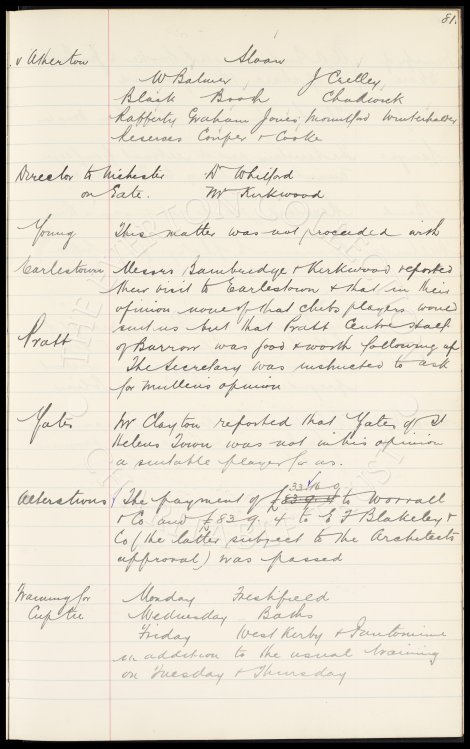 81.
v Atherton Sloan
W Balmer J Crelley
Black Booth Chadwick
Rafferty Graham Jones Mountford Winterhalder
Reserves Cooper & Cooke
Director to Leicester Dr Whitford
on Gate. Mr Kirkwood
Young This matter was not proceeded with
Earlestown Messrs Bambridge & Kirkwood reported
their visit to Earlestown & that in their
opinion none of that clubs players would
suit us but that Pratt Centre Half
Pratt of Barrow was good & worth following up
The Secretary was instructed to ask
for Mullens opinion
Yates Mr Clayton reported that Yates of St
Helens Town was not in his opinion
a suitable player for us.
Alterations The payment of £83 9. 4 to Worrall
& Co and £83 9. 4 to E J Blakeley &
Co (the latter subject to the Architects
approval) was passed
Training for Monday Freshfield
Cup tie Wednesday Baths
Friday West Kirby & Pantomime
in addition to the usual training
on Tuesday & Thursday